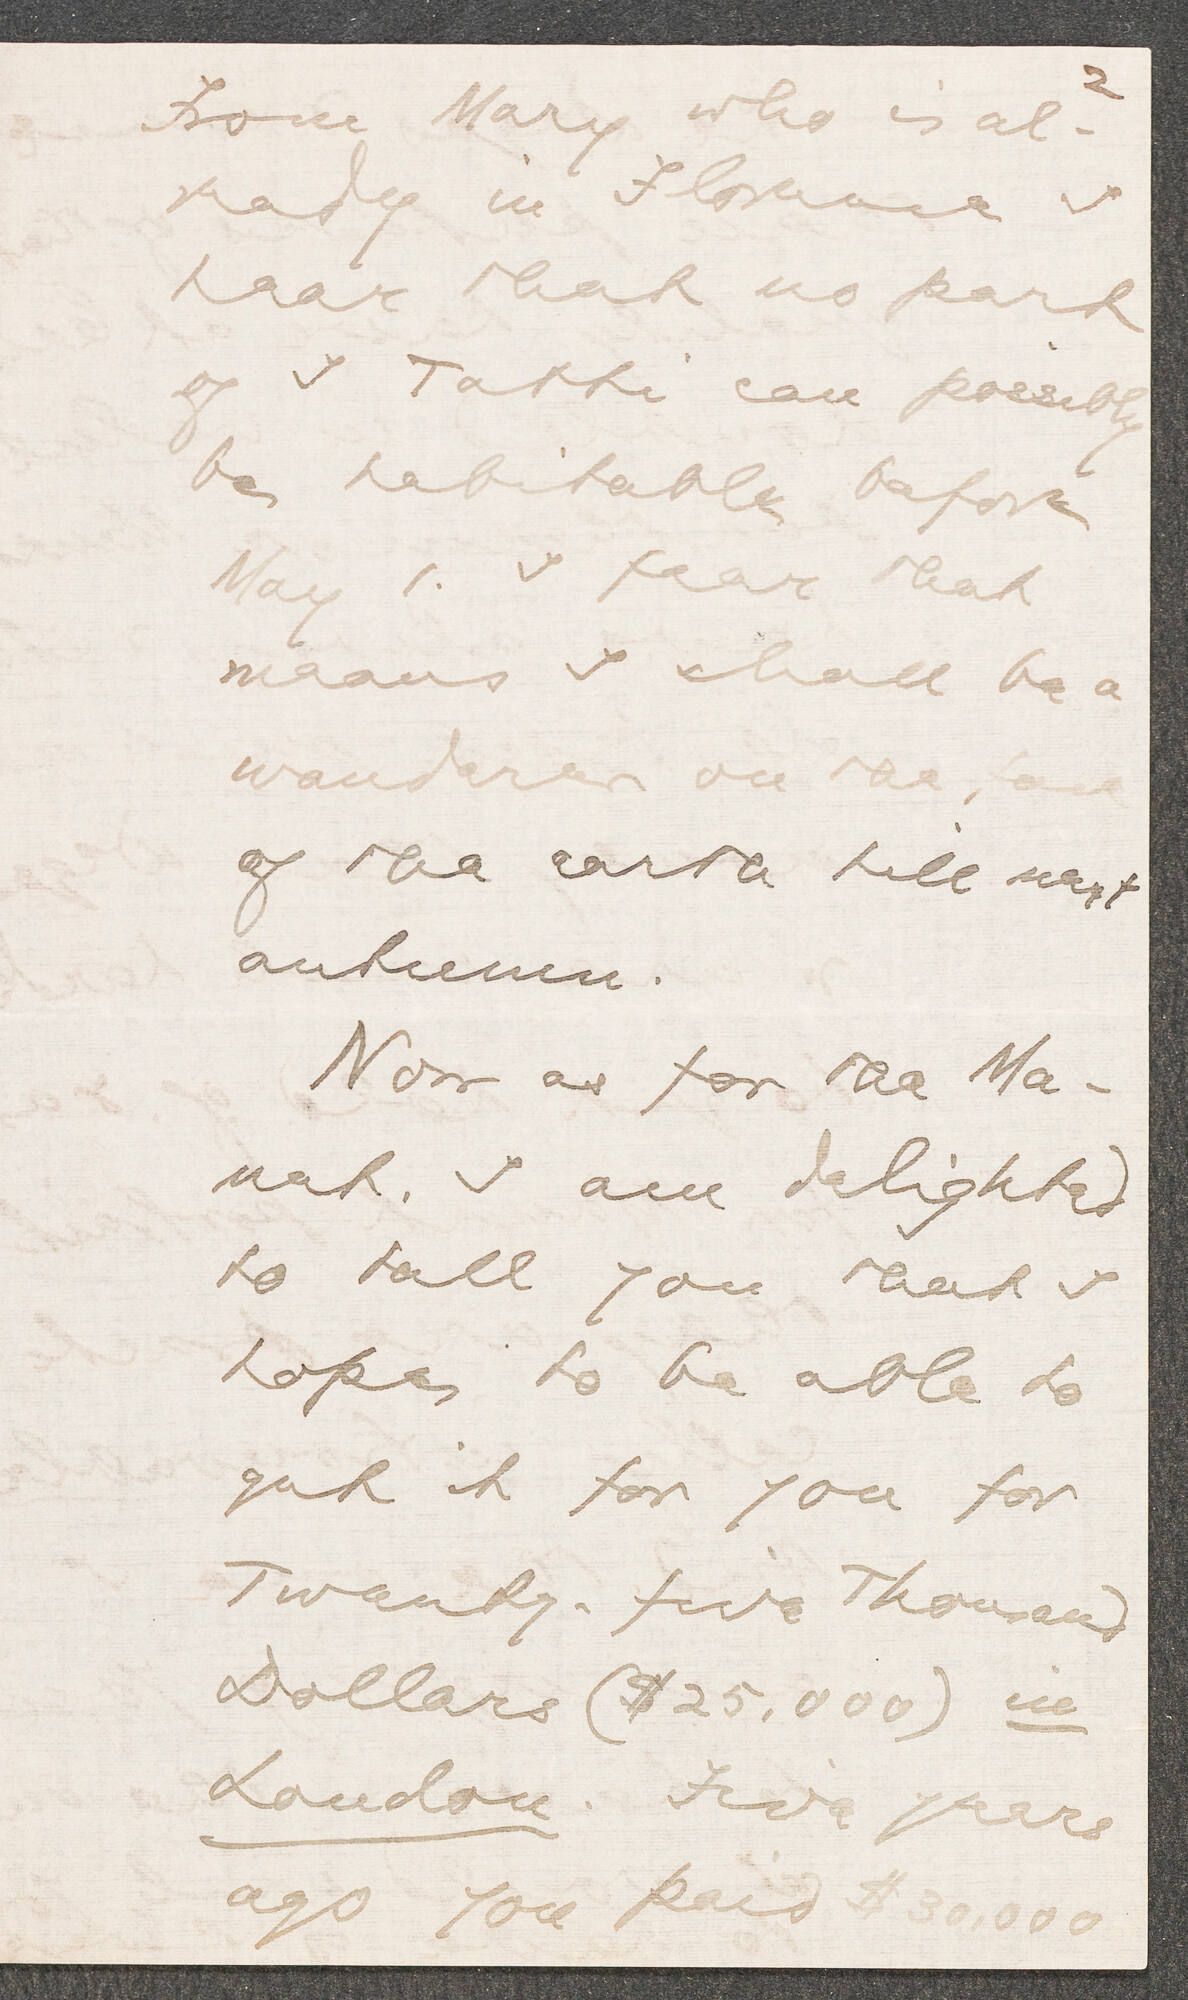 2
From Mary who is al-
ready in Florence I
hear that no part
of I Tatti can possibly
be habitable before
May 1. I fear that
means I shall be a
wanderer on the face
of the earth till next
autumn.
Now as for the Ma-
net. I am delighted
to tell you that I
hope to be able to
get it for you for
Twenty-five Thousand
Dollars ($25,000) in
London. Five years
ago you paid $30,000